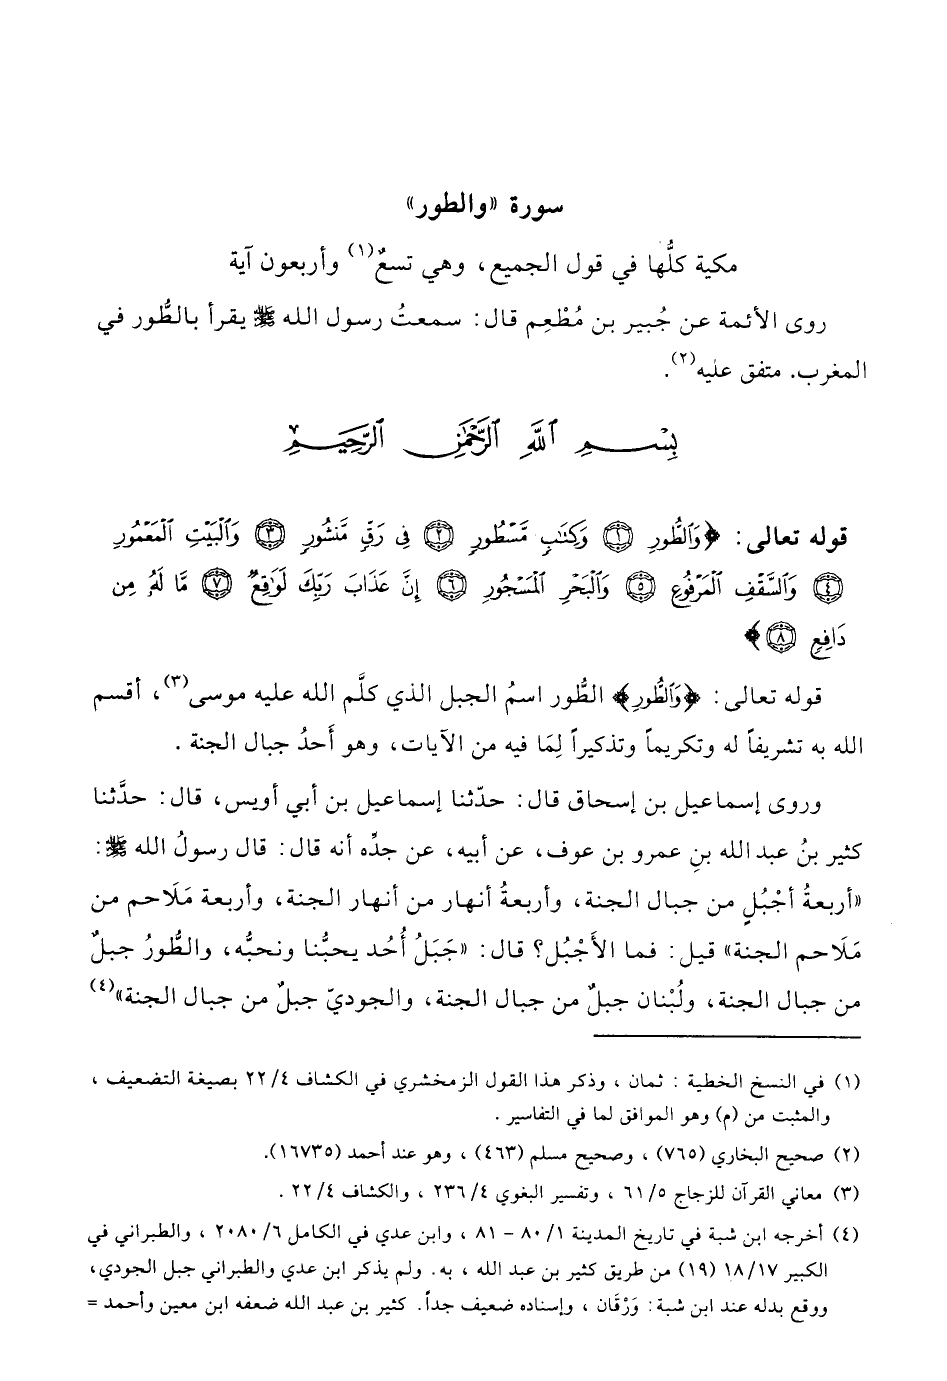 سورة «والطور»
مكية كلُّها في قول الجميع، وهي تسعٌ(١) وأربعون آية
روى الأئمة عن جُبير بن مُطْعِم قال: سمعتُ رسول الله ﷺ يقرأ بالطُّور في
المغرب. متفق عليه(٢).
بِسْمِ ٱللَّهِ ٱلرَّحْمَٰنِ ٱلرَّحِيمِ
قوله تعالى: ﴿وَٱلطُّورِ ۝١ وَكِتَٰبٍ مَّسْطُورٍ ۝٢ فِى رَقٍّ مَّنشُورٍ ۝٣ وَٱلْبَيْتِ ٱلْمَعْمُورِ
۝٤ وَٱلسَّقْفِ ٱلْمَرْفُوعِ ۝٥ وَٱلْبَحْرِ ٱلْمَسْجُورِ ۝٦ إِنَّ عَذَابَ رَبِّكَ لَوَٰقِعٌ ۝٧ مَّا لَهُۥ مِن
دَافِعٍ ۝٨﴾
قوله تعالى: ﴿وَٱلطُّورِ﴾ الطُّور اسمُ الجبل الذي كلَّم الله عليه موسى(٣)، أقسم
الله به تشريفاً له وتكريماً وتذكيراً لِمَا فيه من الآيات، وهو أَحدُ جبال الجنة .
وروى إسماعيل بن إسحاق قال: حدّثنا إسماعيل بن أبي أويس، قال: حدَّثنا
كثير بنُ عبد الله بنِ عمرو بن عوف، عن أبيه، عن جدِّه أنه قال: قال رسولُ الله ﷺ:
«أربعةُ أجْبُلٍ من جبال الجنة، وأربعةُ أنهار من أنهار الجنة، وأربعة مَلَاحم من
مَلَاحم الجنة» قيل: فما الأَجْبُل؟ قال: «جَبَلُ أُحُد يحبُّنا ونحبُّه، والطُّورُ جبلٌ
من جبال الجنة، ولُبْنان جبلٌ من جبال الجنة، والجوديّ جبلٌ من جبال الجنة»(٤)
(١) في النسخ الخطية : ثمان ، وذكر هذا القول الزمخشري في الكشاف ٤/ ٢٢ بصيغة التضعيف ،
والمثبت من (م) وهو الموافق لما في التفاسير .
(٢) صحيح البخاري (٧٦٥) ، وصحيح مسلم (٤٦٣) ، وهو عند أحمد (١٦٧٣٥).
(٣) معاني القرآن للزجاج ٥/ ٦١ ، وتفسير البغوي ٤/ ٢٣٦ ، والكشاف ٤/ ٢٢ .
(٤) أخرجه ابن شبة في تاريخ المدينة ١/ ٨٠ - ٨١ ، وابن عدي في الكامل ٦/ ٢٠٨٠ ، والطبراني في
الكبير ١٧/ ١٨ (١٩) من طريق كثير بن عبد الله ، به. ولم يذكر ابن عدي والطبراني جبل الجودي،
ووقع بدله عند ابن شبة: وَرْقَان ، وإسناده ضعيف جداً. كثير بن عبد الله ضعفه ابن معين وأحمد =